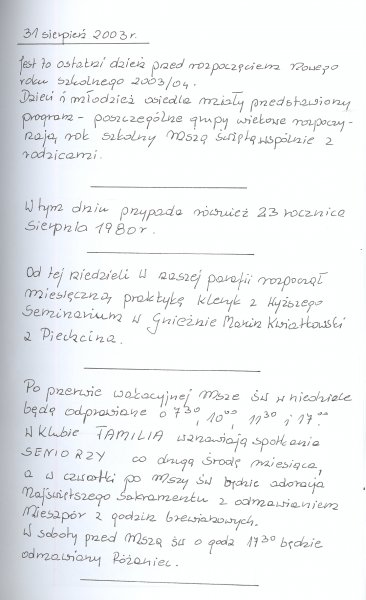 31 sierpień 2003 r.
Jest to ostatni dzień przed rozpoczęciem nowego
roku szkolnego 2003/04.
Dzieci i młodzież osiedla miały przedstawiony
program - poszczególne grupy wiekowe rozpoczy-
nają rok szkolny Mszą świętą wspólnie z
rodzicami.
W tym dniu przypada również 23 rocznica
sierpnia 1980 r.
Od tej niedzieli w naszej parafii rozpoczął
miesięczną praktykę kleryk z Wyższego
Seminarium w Gnieźnie Marcin Kwiatkowski
z Piechcina.
Po przerwie wakacyjnej Msze św w niedziele
będą odprawiane o 7³⁰, 10⁰⁰, 11³⁰ i 17⁰⁰.
W klubie FAMILIA wznawiają spotkania
SENIORZY co drugą środę miesiąca,
a w czwartki po Mszy św będzie adoracja
Najświętszego Sakramentu z odmawianiem
Nieszpór z godzin brewiarzowych.
W soboty przed Mszą św o godz 17³⁰ będzie
odmawiany Różaniec.